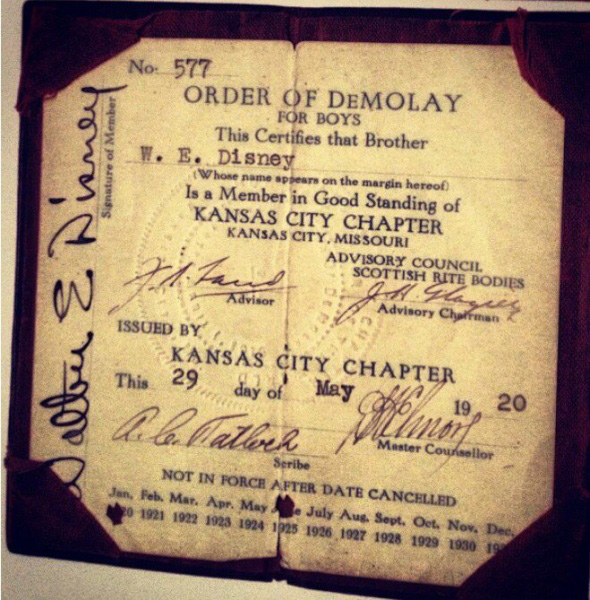 No. 577
ORDER OF DEMOLAY
FOR BOYS
This Certifies that Brother
W. E. Disney
(Whose name appears on the margin hereof)
Is a Member in Good Standing of
KANSAS CITY CHAPTER
KANSAS CITY, MISSOURI
ADVISORY COUNCIL
SCOTTISH RITE BODIES
Advisor
Advisory Chairman
ISSUED BY
KANSAS CITY CHAPTER
This 29 day of May 1920
Scribe
Master Counsellor
NOT IN FORCE AFTER DATE CANCELLED
Jan. Feb. Mar. Apr. May July Aug. Sept. Oct. Nov. Dec.
1921 1922 1923 1924 1925 1926 1927 1928 1929 1930
Signature of Member
Walter E Disney